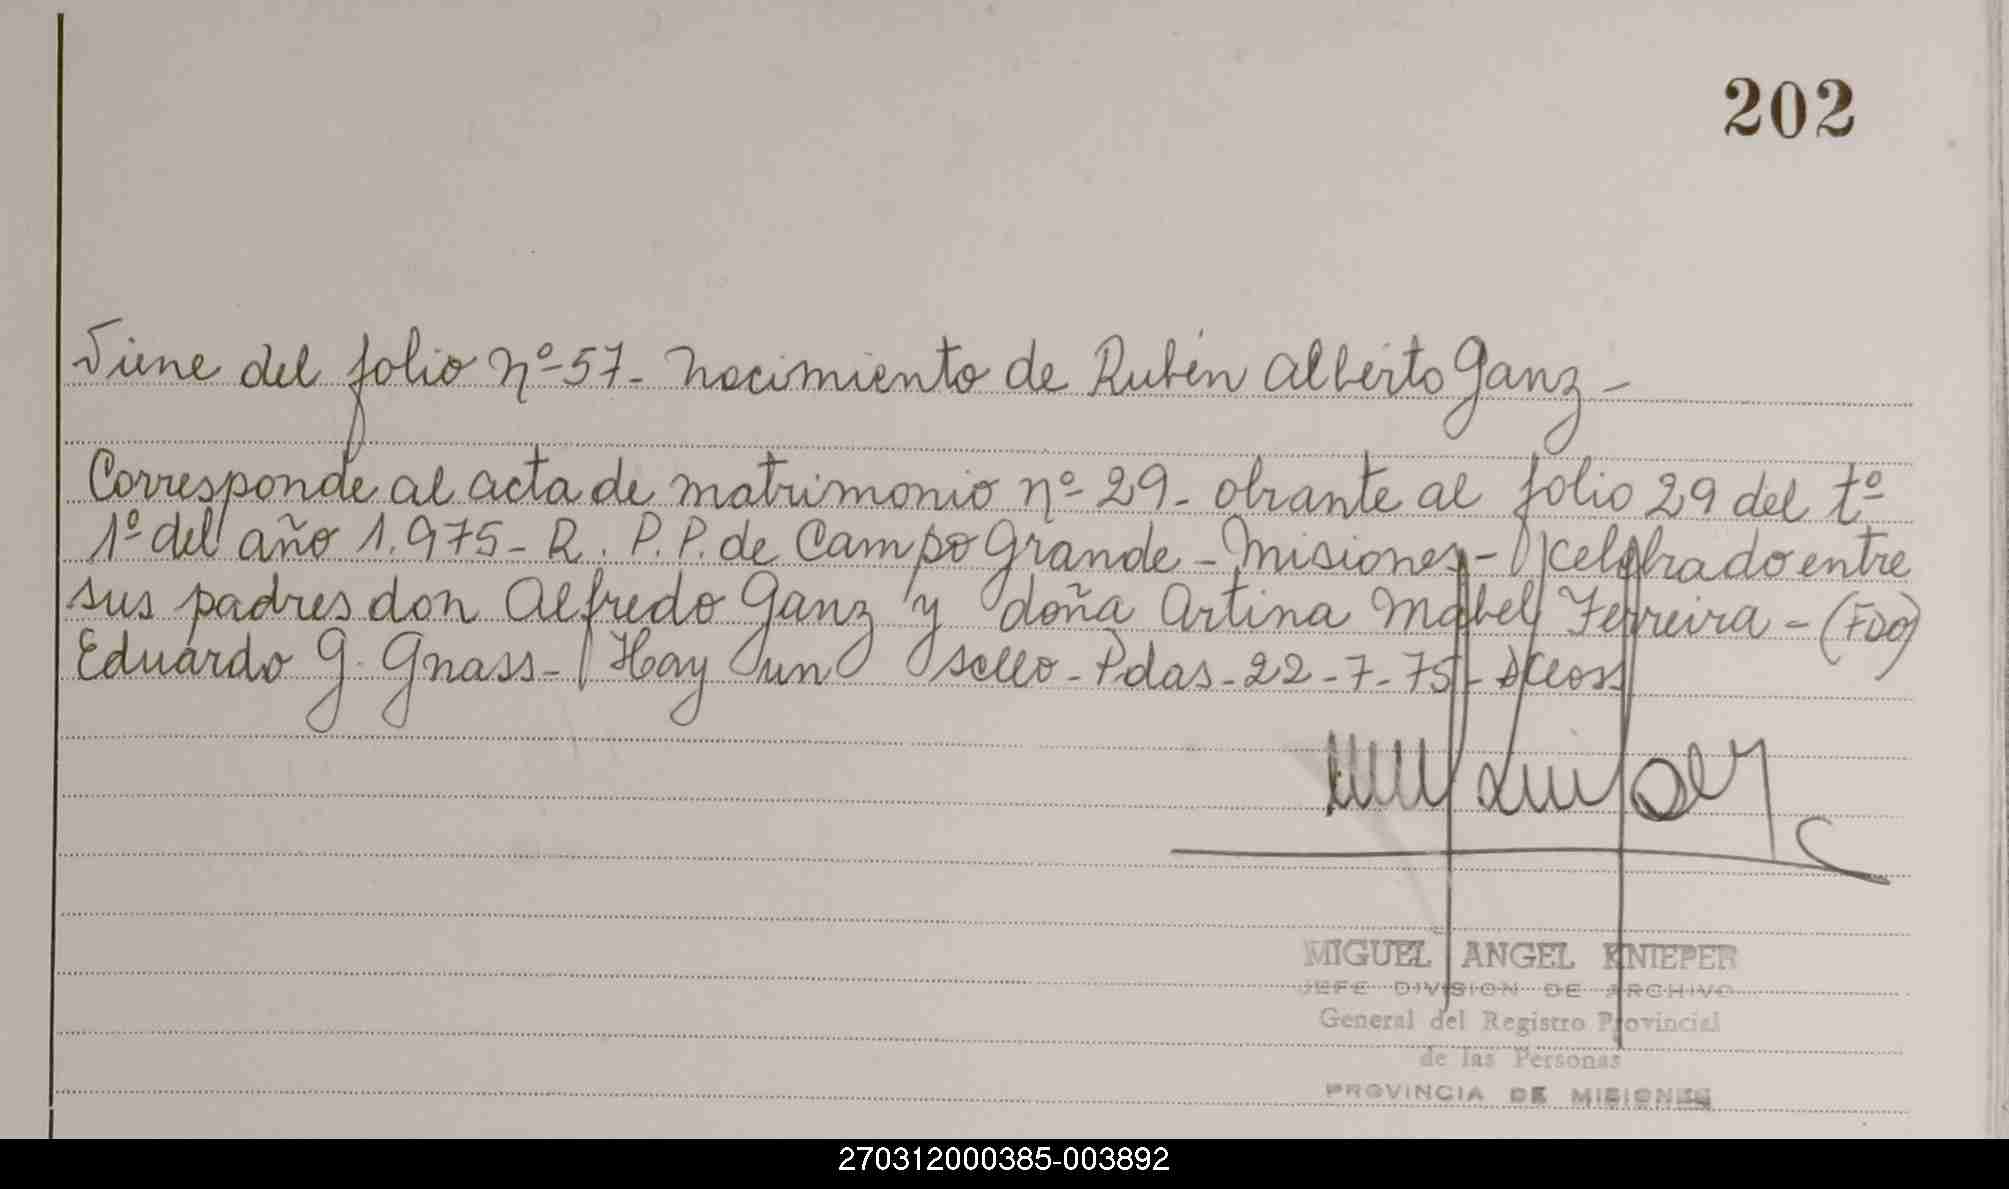 202
Viene del folio nº 57- Nacimiento de Rubén Alberto Ganz-
Corresponde al acta de matrimonio nº 29- obrante al folio 29 del tº
1º del año 1.975- R. P. P. de Campo Grande- Misiones- celebrado entre
sus padres don Alfredo Ganz y doña Artina Mabel Ferreira- (FDO)
Eduardo G. Gnass- Hay un sello- Pdas- 22-7-75-
MIGUEL ANGEL KNIEPER
JEFE DIVISION DE ARCHIVO
General del Registro Provincial
de las Personas
PROVINCIA DE MISIONES
270312000385-003892